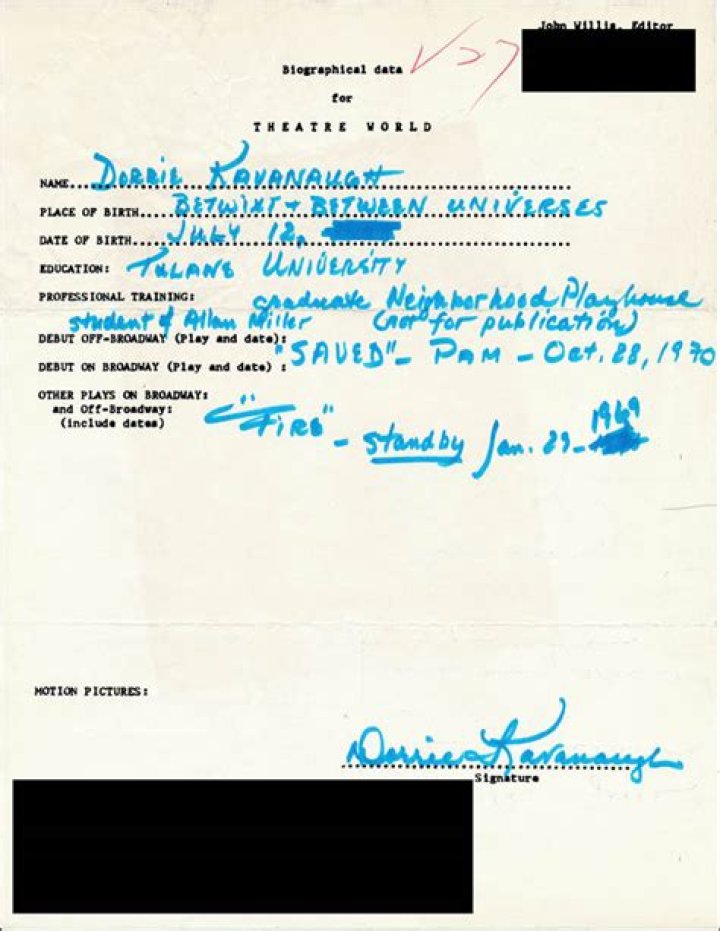 John Willis, Editor
Biographical data
for
THEATRE WORLD
NAME....DORRIE KAVANAUGH
PLACE OF BIRTH....BETWIXT + BETWEEN UNIVERSES
DATE OF BIRTH....JULY 12,
EDUCATION: TULANE UNIVERSITY
PROFESSIONAL TRAINING: graduate Neighborhood Playhouse
student of Allan Miller (not for publication)
DEBUT OFF-BROADWAY (Play and date):
"SAVED" - PAM - Oct. 28, 1970
DEBUT ON BROADWAY (Play and date) :
OTHER PLAYS ON BROADWAY:
and Off-Broadway:
(include dates)
"FIRE" - standby Jan. 29 - 1969
MOTION PICTURES:
Dorrie Kavanaugh
Signature